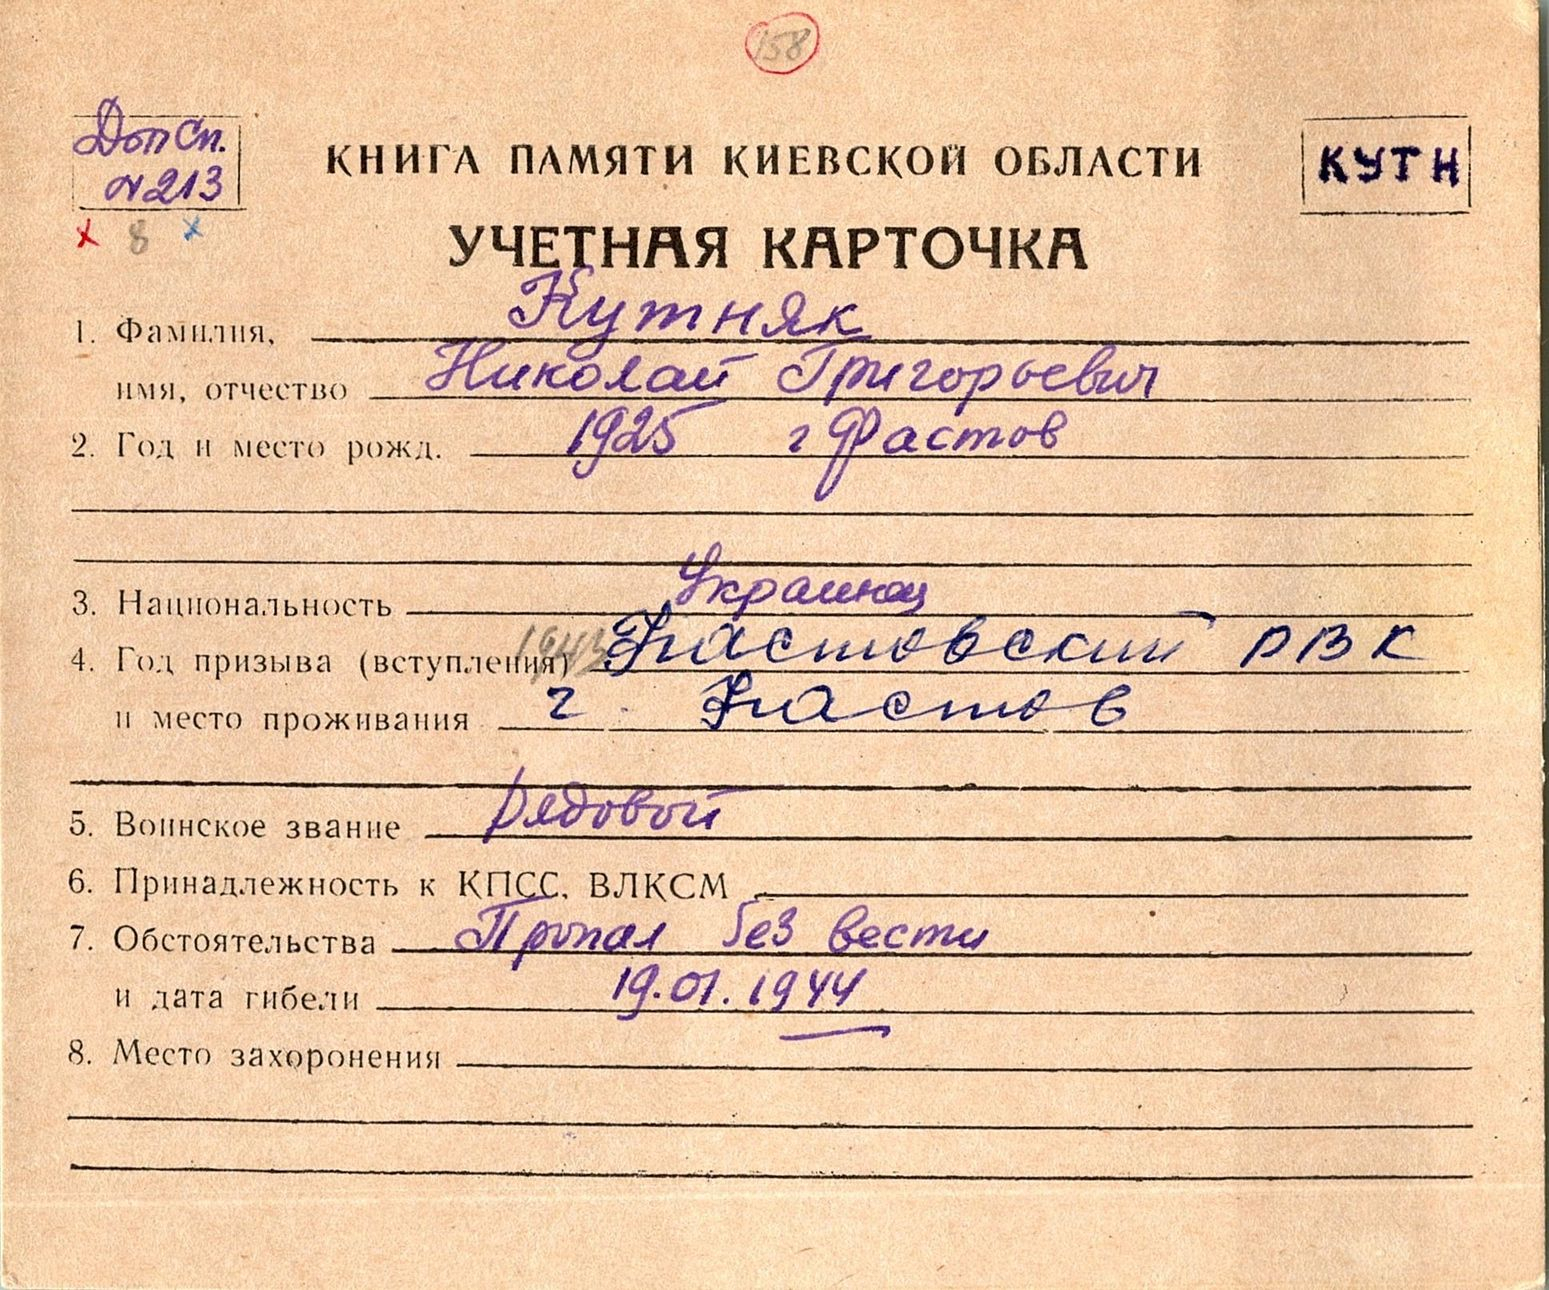 158
Доп Сп.
N 213
КНИГА ПАМЯТИ КИЕВСКОЙ ОБЛАСТИ
КУТН
х 8 х
УЧЕТНАЯ КАРТОЧКА
1. Фамилия, Кутняк
имя, отчество Николай Григорьевич
2. Год и место рожд. 1925 г Фастов
3. Национальность Украинец
4. Год призыва (вступления) 1943 Фастовский РВК
и место проживания г. Фастов
5. Воинское звание рядовой
6. Принадлежность к КПСС, ВЛКСМ
7. Обстоятельства Пропал без вести
и дата гибели 19.01.1944
8. Место захоронения